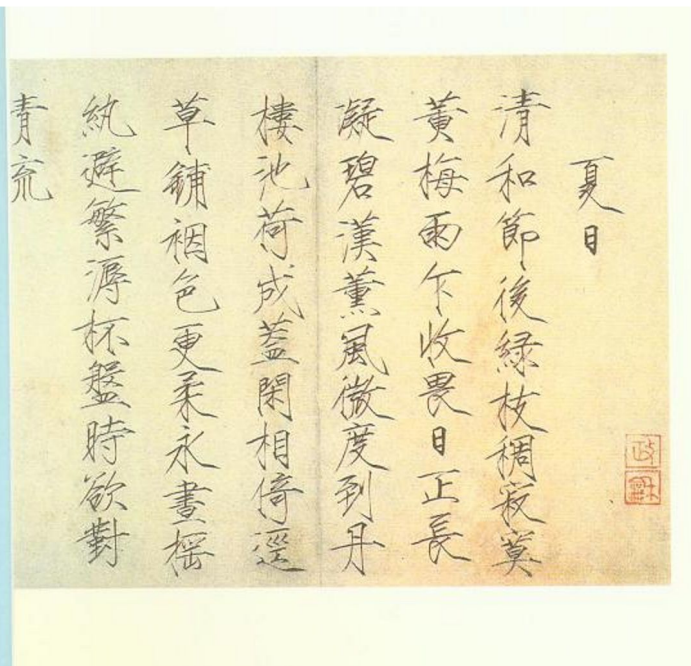 夏日
清和節後緑枝稠寂寞
黃梅雨乍收畏日正長
凝碧漢薰風微度到丹
樓池荷成蓋閑相倚逕
草鋪裀色更柔永晝揺
紈避繁溽杯盤時欲對
青流
政
龢